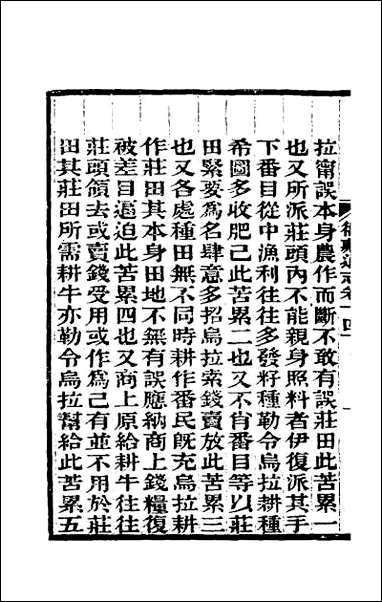 拉甯誤本身農作而斷不敢有誤莊田此苦累一
也又所派莊頭內不能親身照料者伊復派其手
下番目從中漁利往往多發籽種勒令烏拉耕種
希圖多收肥己此苦累二也又不肖番目等以莊
田緊要爲名肆意多招烏拉索錢賣放此苦累三
也又各處種田無不同時耕作番民旣充烏拉耕
作莊田其本身田地不無有誤應納商上錢糧復
被差目逼迫此苦累四也又商上原給耕牛往往
莊頭領去或賣錢受用或作爲己有並不用於莊
田其莊田所需耕牛亦勒令烏拉幫給此苦累五
衛藏通志卷十四